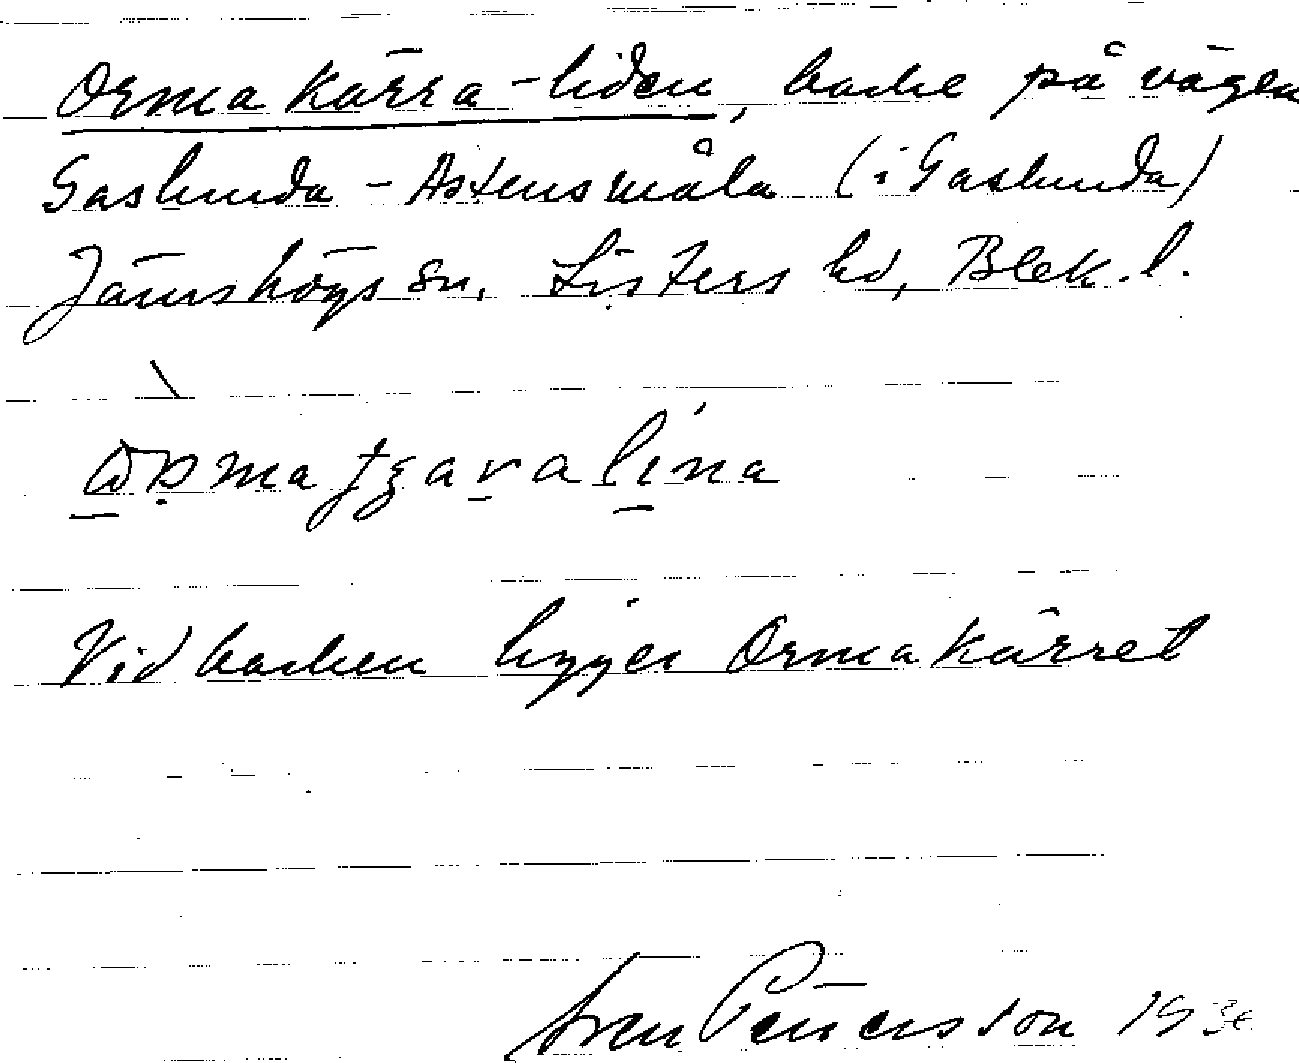 Ormakärra-liden, backe på vägen
Gaslunda - Astensmåla (i Gaslunda)
Jämshögs sn, Listers hd, Blek. l.
Vid backen ligger Ormakärret
Sven Petersson 193